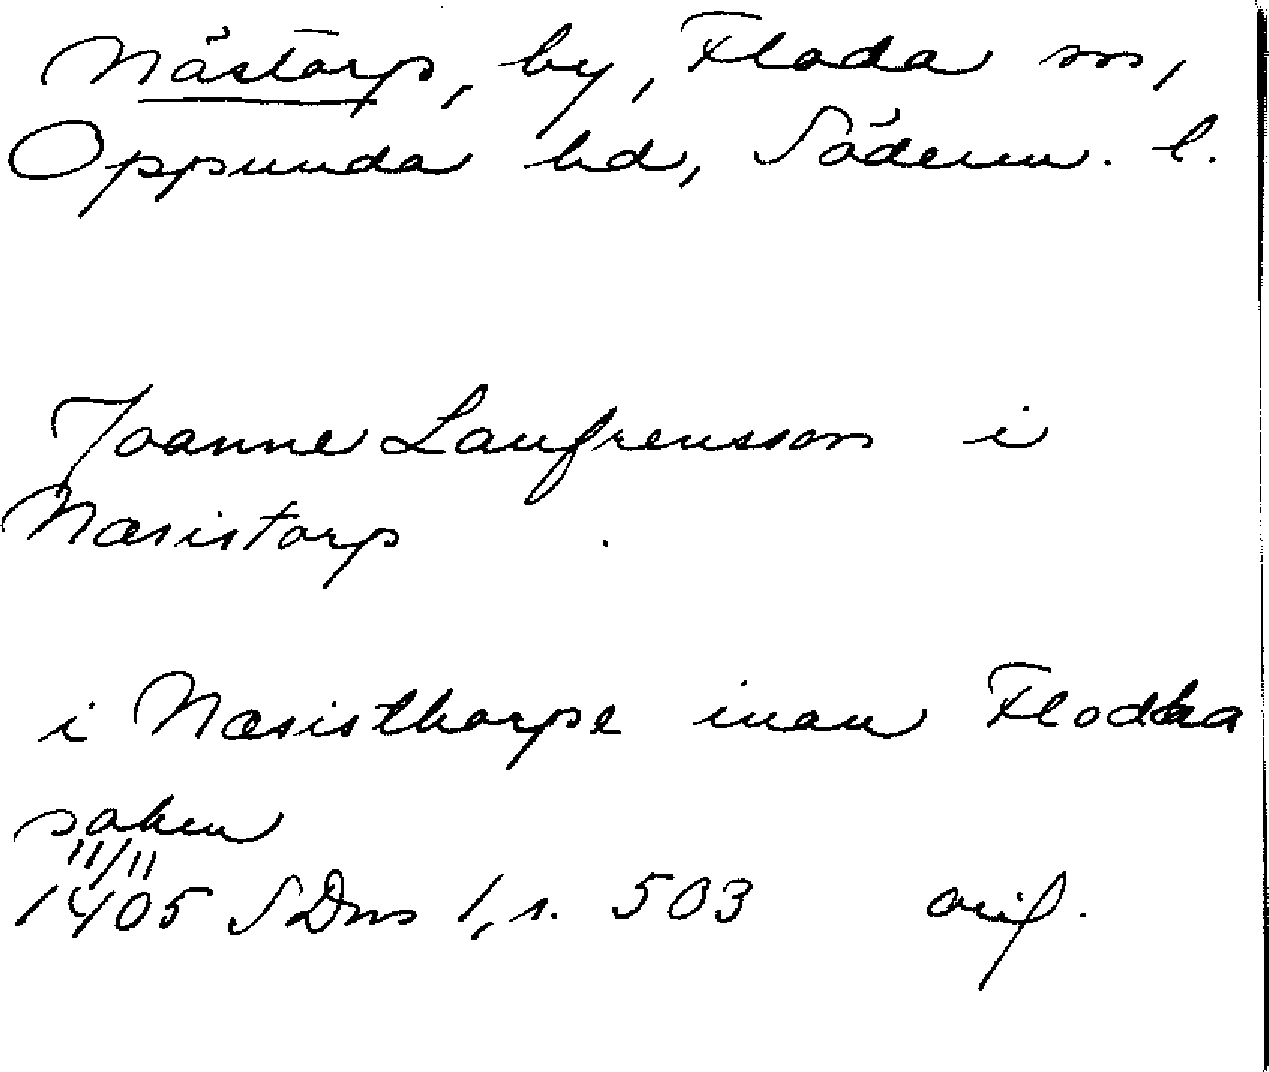 Nästorp, by, Floda sn,
Oppunda hd, Söderm. l.
Joanne Laufrensson i
Næsistorp
i Næsisthorpe inan Flodha
sokn
11/11
1405 SDns 1, s. 503 orig.